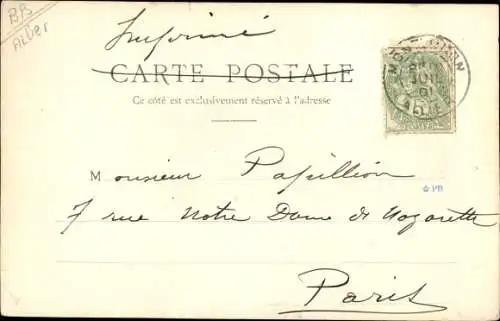 BB
Allier
Imprimé
CARTE POSTALE
Ce côté est exclusivement réservé à l'adresse
Monsieur Papillion
7 rue Notre Dame de Nazareth
Paris